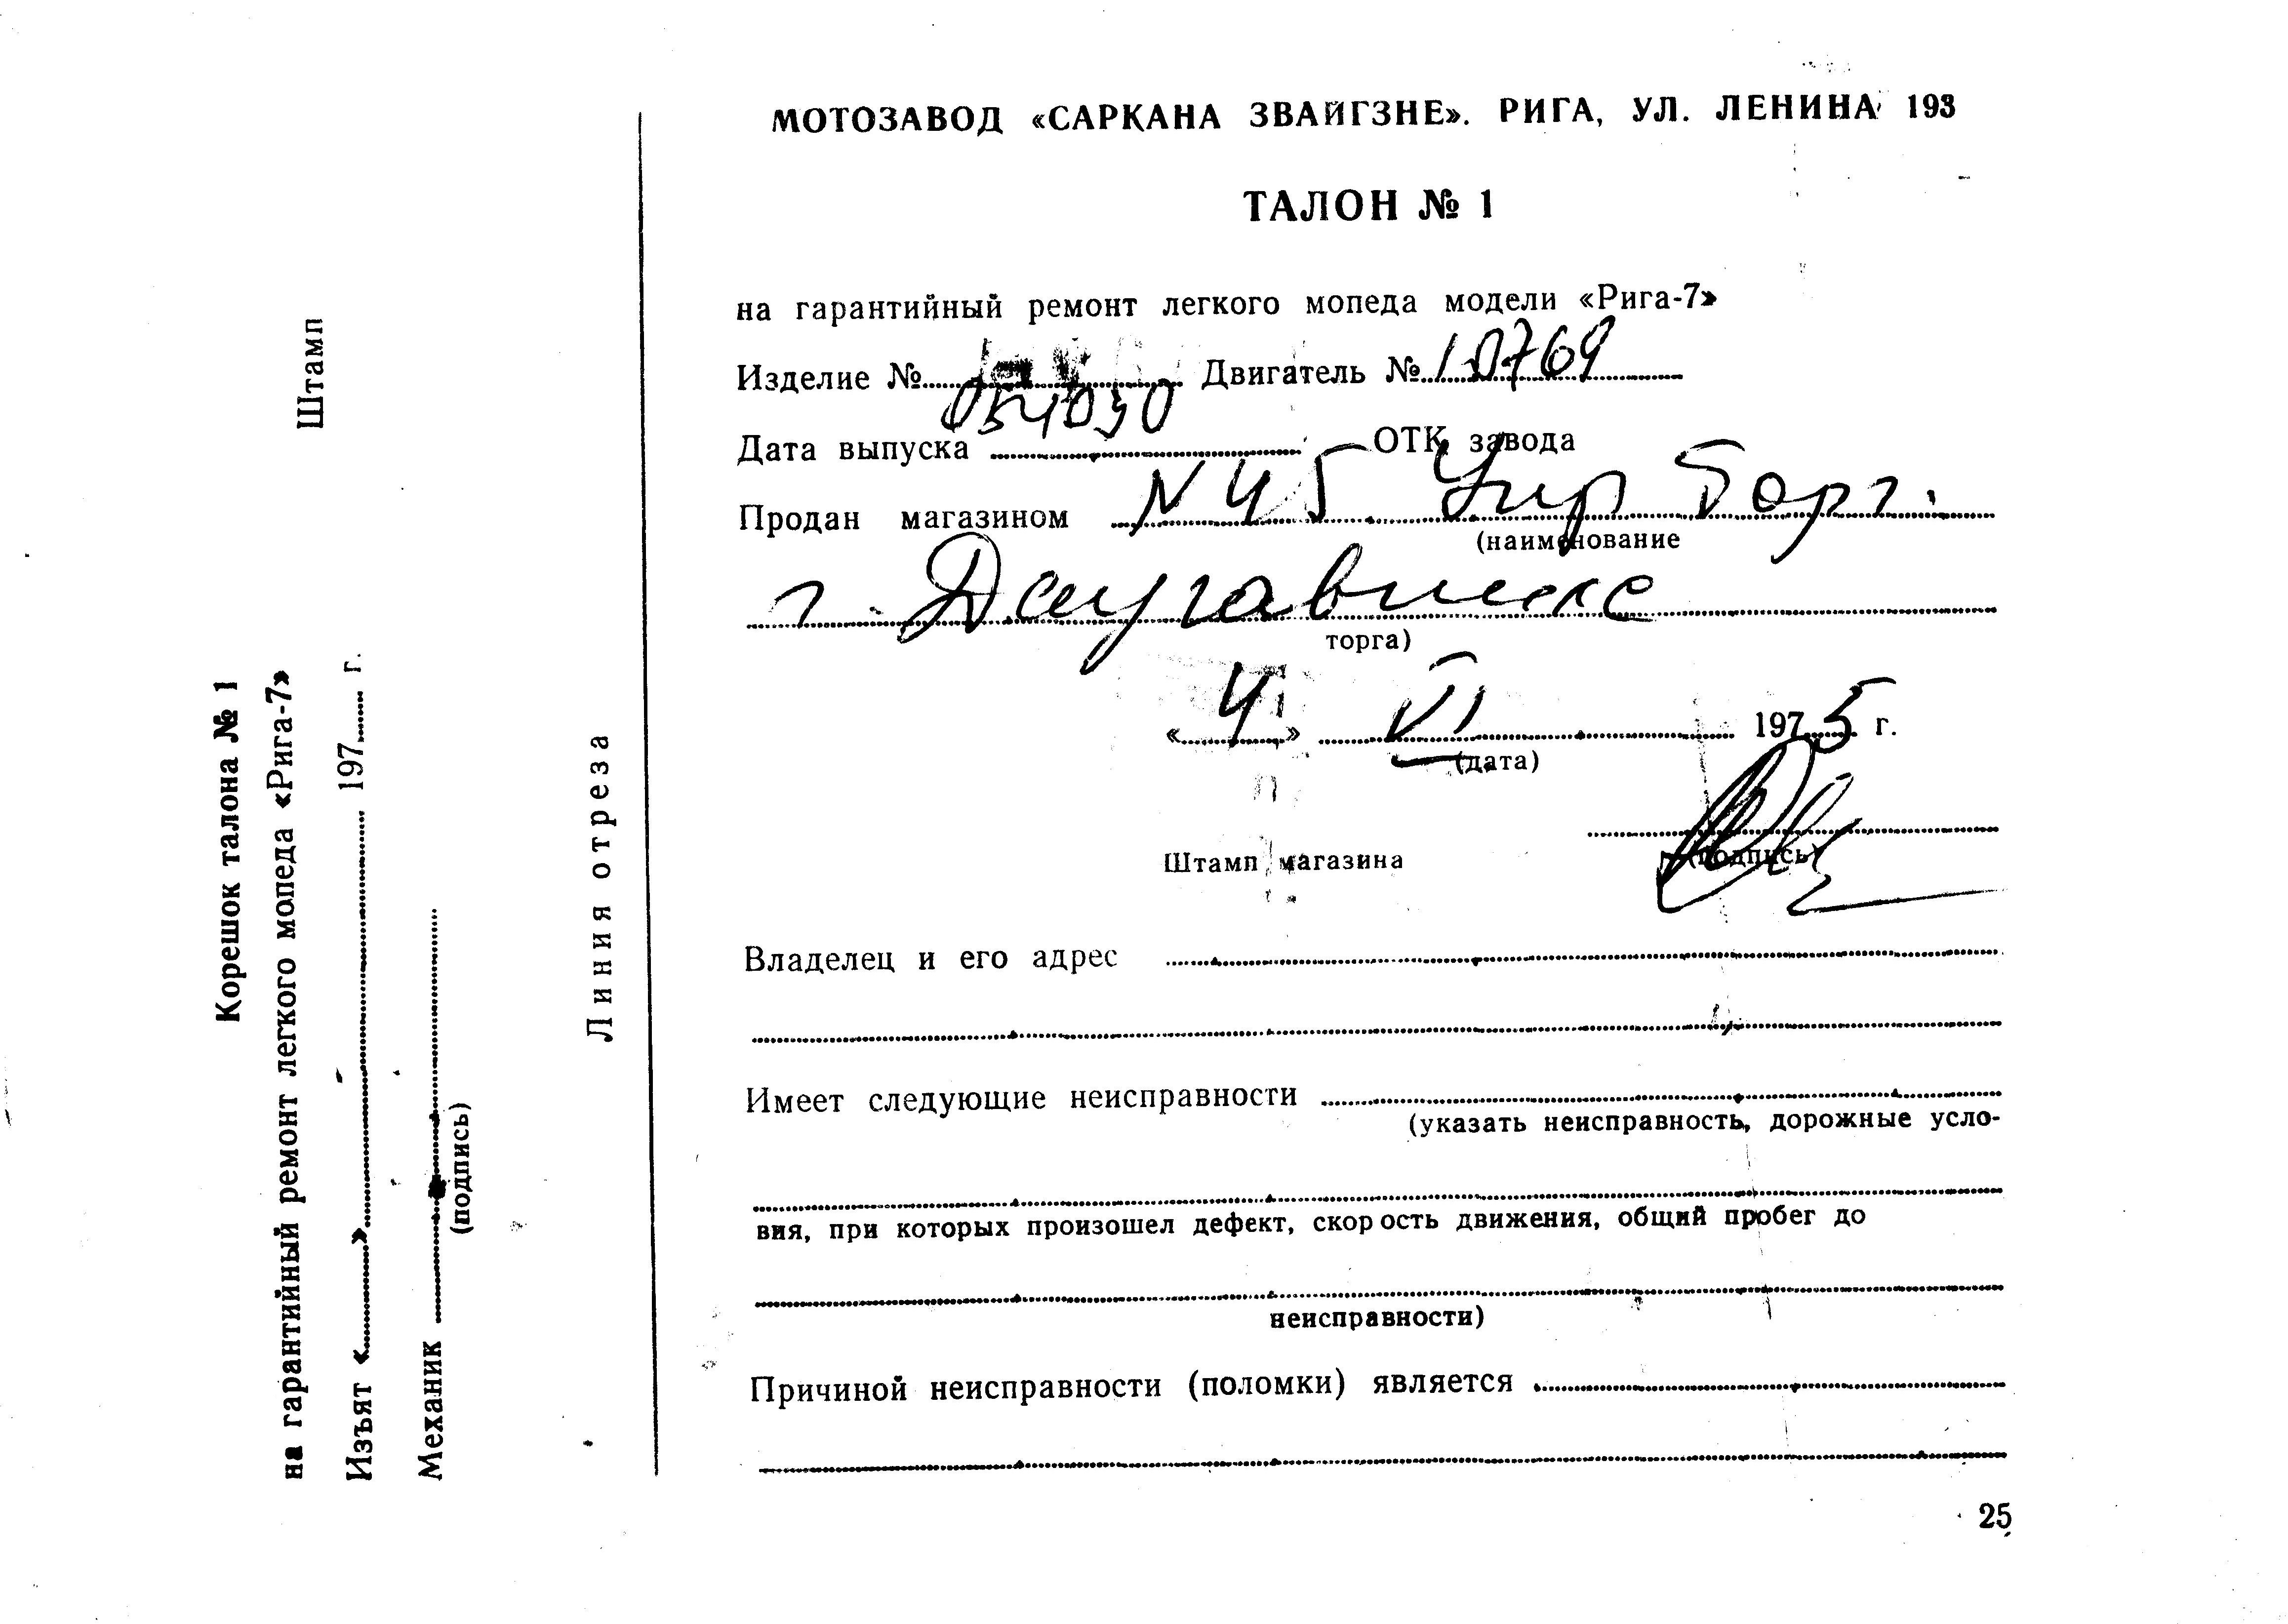 МОТОЗАВОД «САРКАНА ЗВАЙГЗНЕ». РИГА, УЛ. ЛЕНИНА 193
ТАЛОН № 1
на гарантийный ремонт легкого мопеда модели «Рига-7»
Изделие № Двигатель № 10769
Дата выпуска ОТК завода
Продан магазином N 45 Торг.
(наименование
г. Даугавпилс
торга)
«4» VI 1975 г.
(дата)
Штамп магазина (подпись)
Владелец и его адрес
Имеет следующие неисправности
(указать неисправность, дорожные усло-
вия, при которых произошел дефект, скорость движения, общий пробег до
неисправности)
Причиной неисправности (поломки) является
25
Линия отреза
Корешок талона № 1
на гарантийный ремонт легкого мопеда «Рига-7»
Штамп
Изъят « » 197 г.
Механик
(подпись)